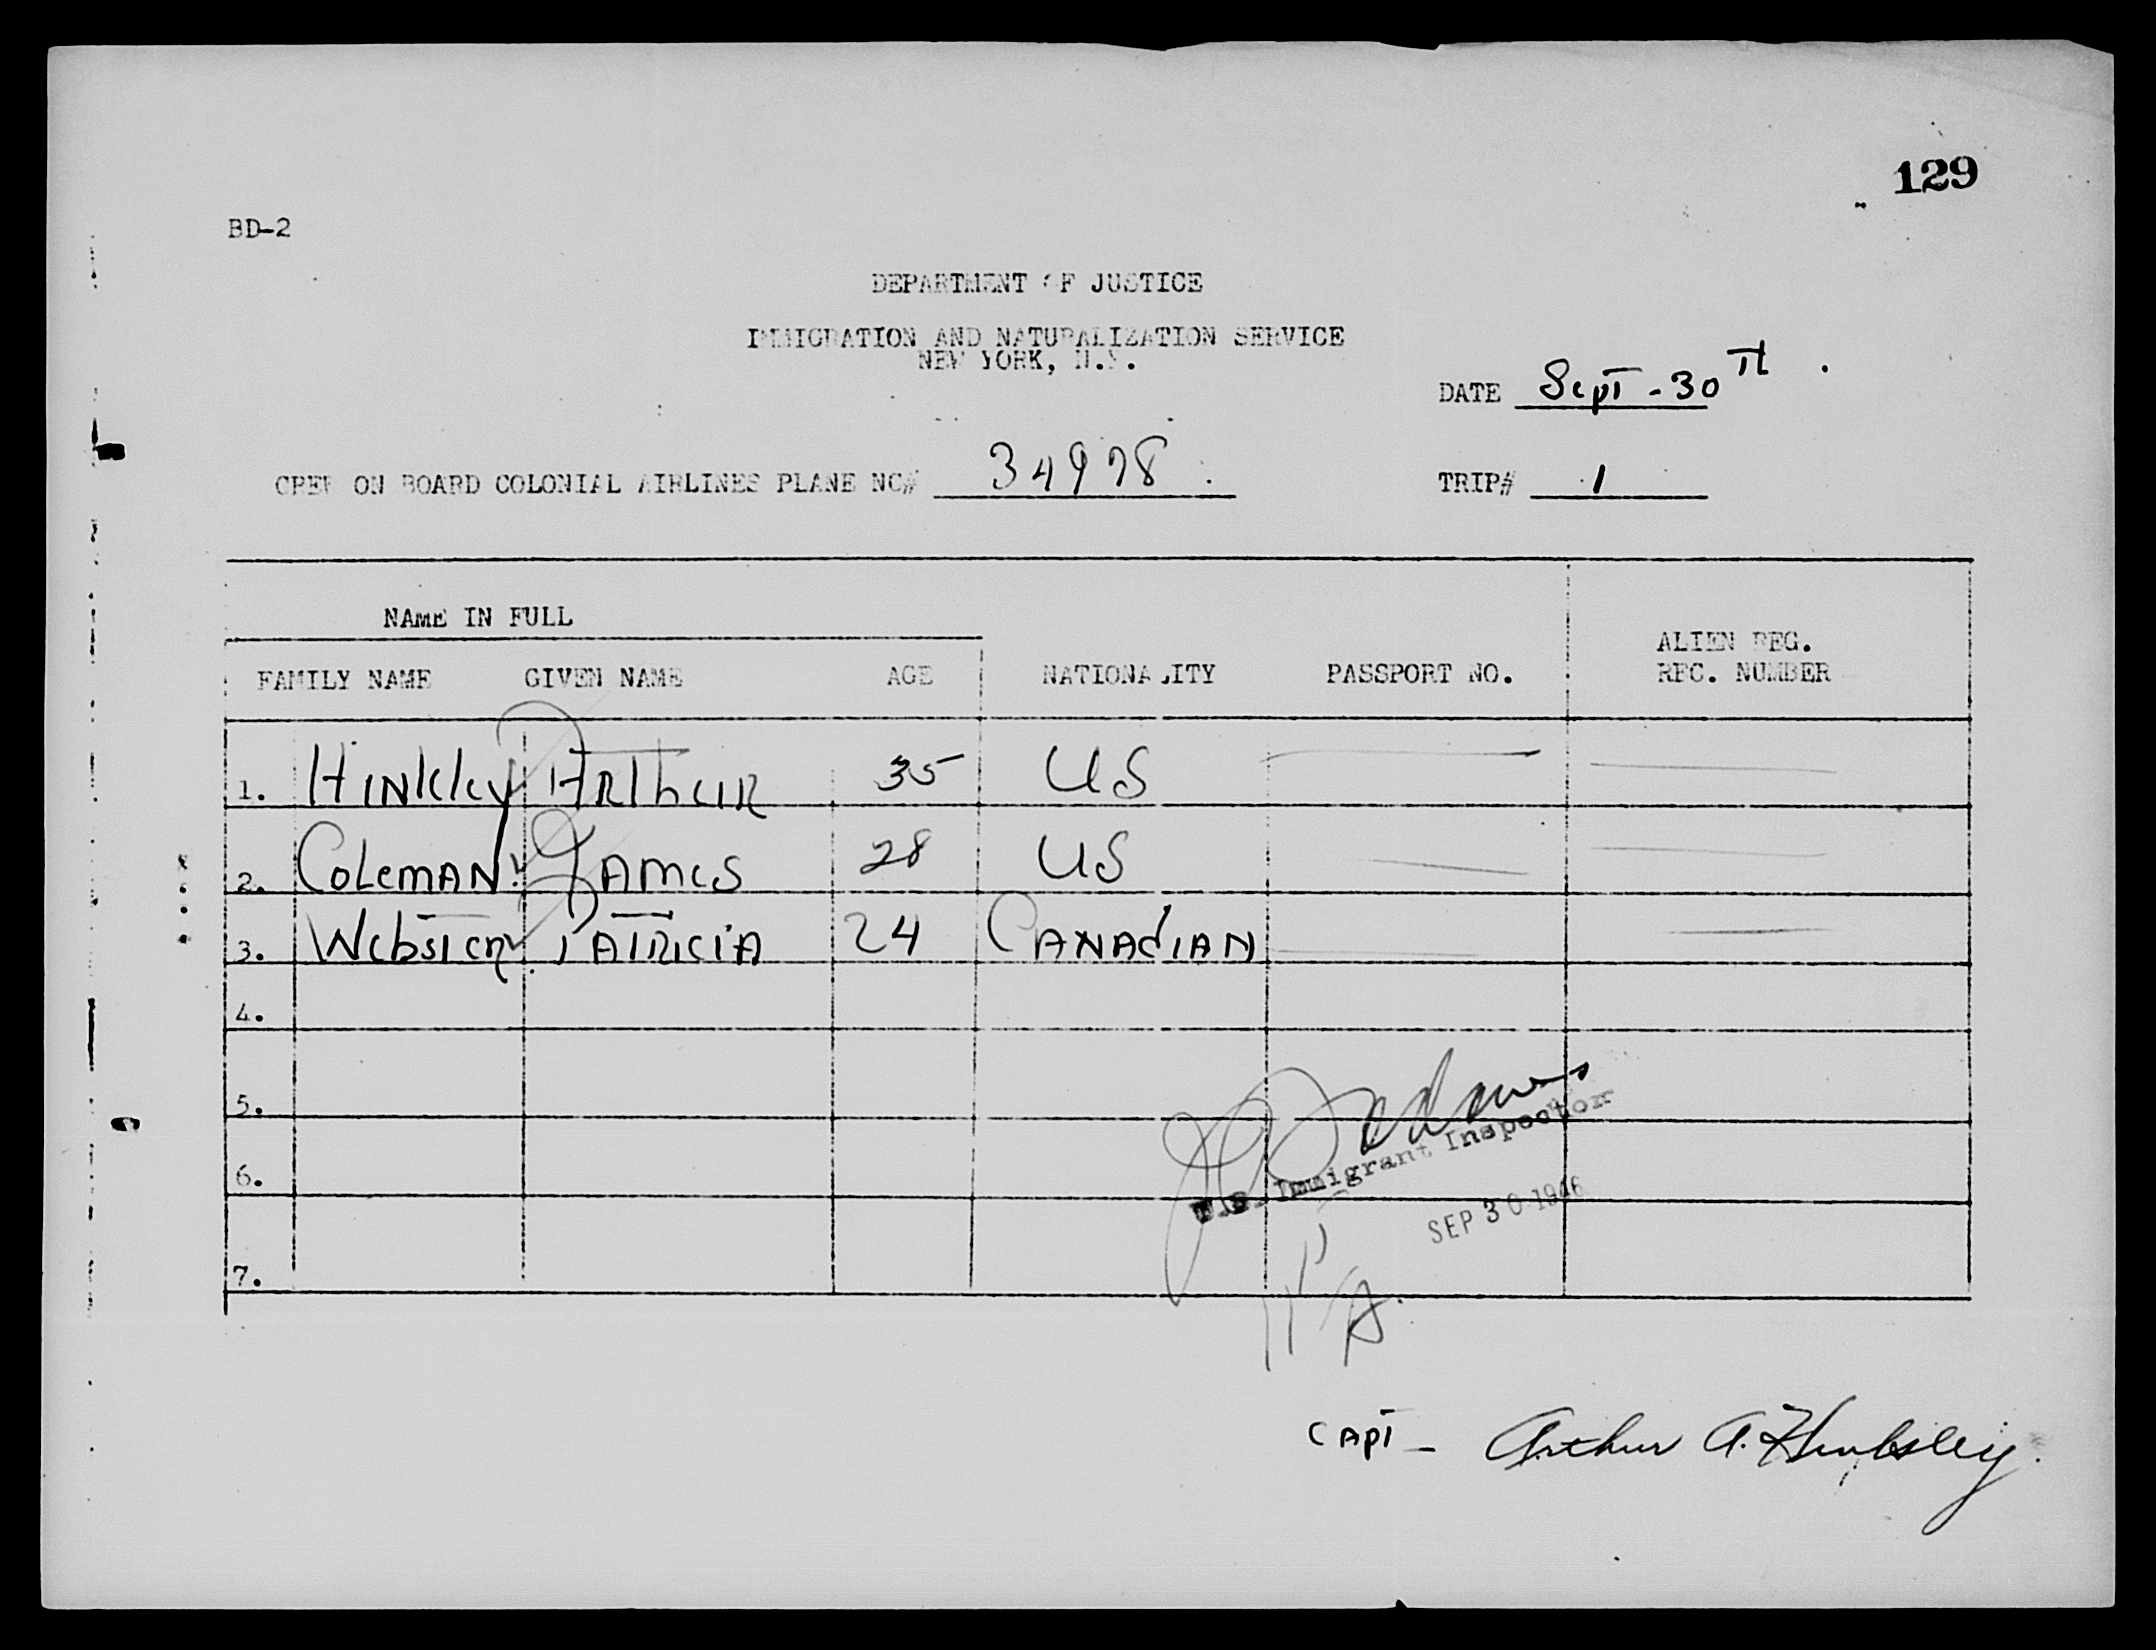 129
BD-2
DEPARTMENT OF JUSTICE
IMMIGRATION AND NATURALIZATION SERVICE
NEW YORK, N.Y.
DATE Sept - 30th
CREW ON BOARD COLONIAL AIRLINES PLANE NC# 34978 TRIP# 1
NAME IN FULL
FAMILY NAME GIVEN NAME AGE NATIONALITY PASSPORT NO. ALIEN REG.
REC. NUMBER
1. Hinkley Arthur 35 US
2. Coleman James 28 US
3. Webster Patricia 24 Canadian
4.
5.
6.
7.
U.S. Immigrant Inspector
SEP 30 1946
Capt - Arthur A. Hinkley.